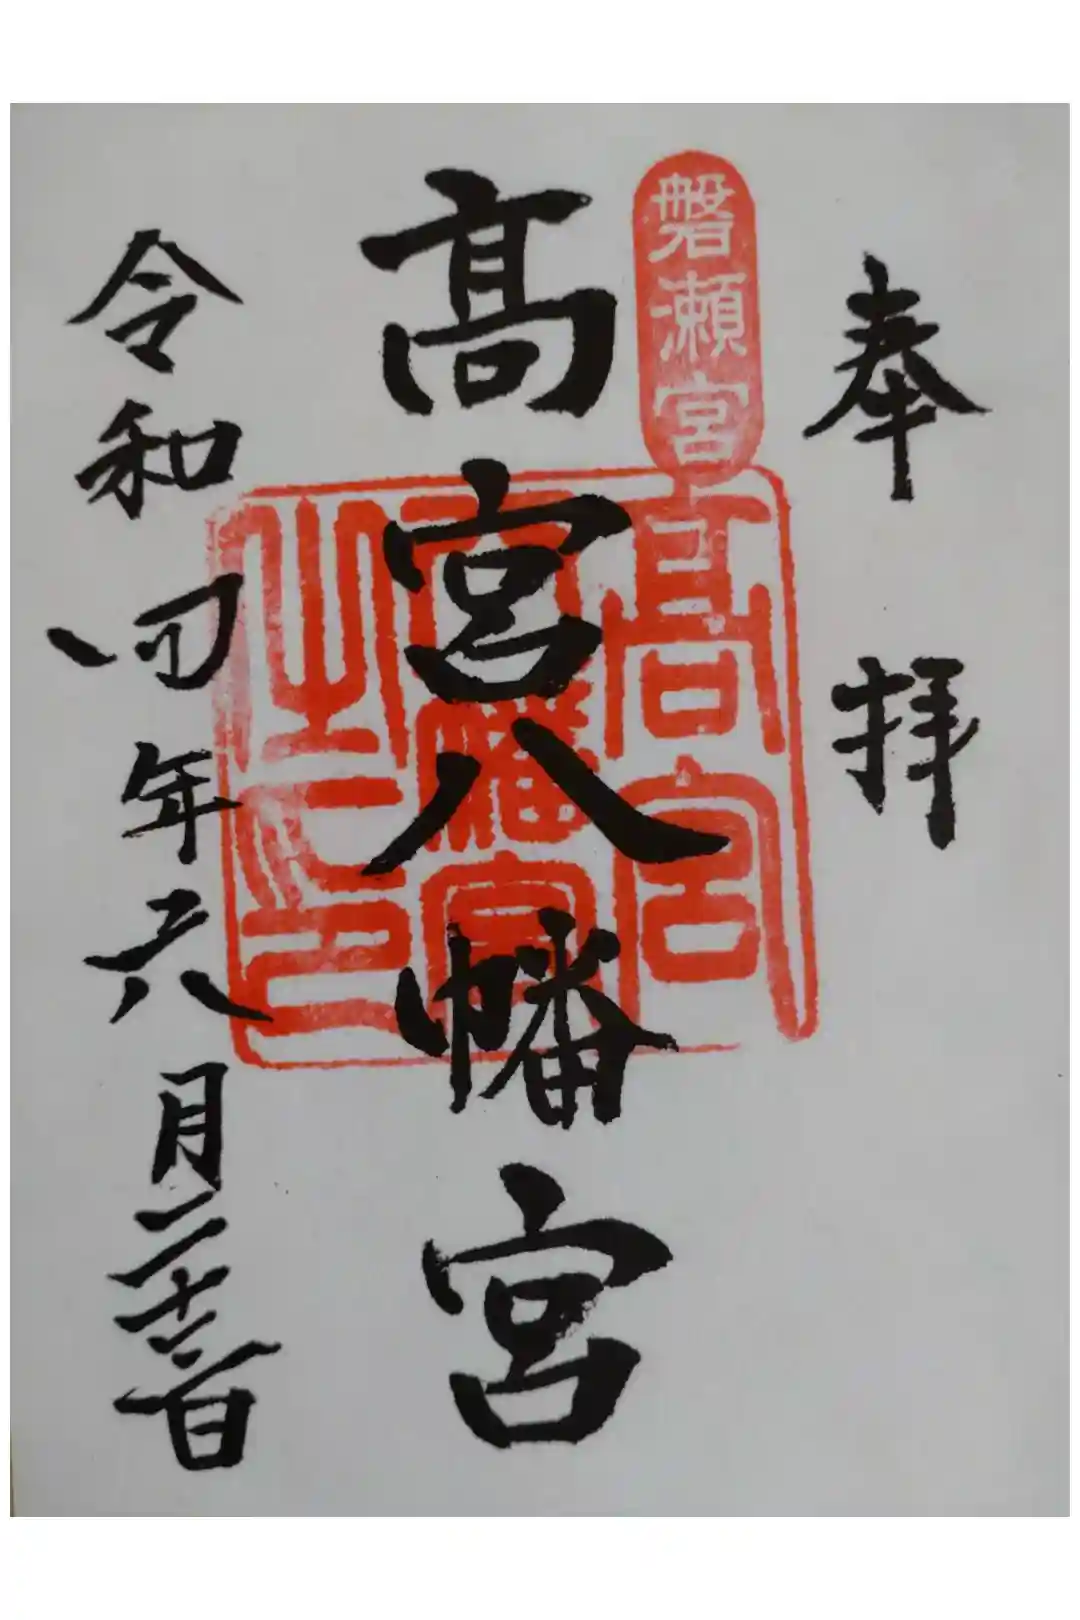 奉拝
磐瀬宮
髙宮八幡宮
髙宮
八幡宮
之印
令和四年六月二十三日